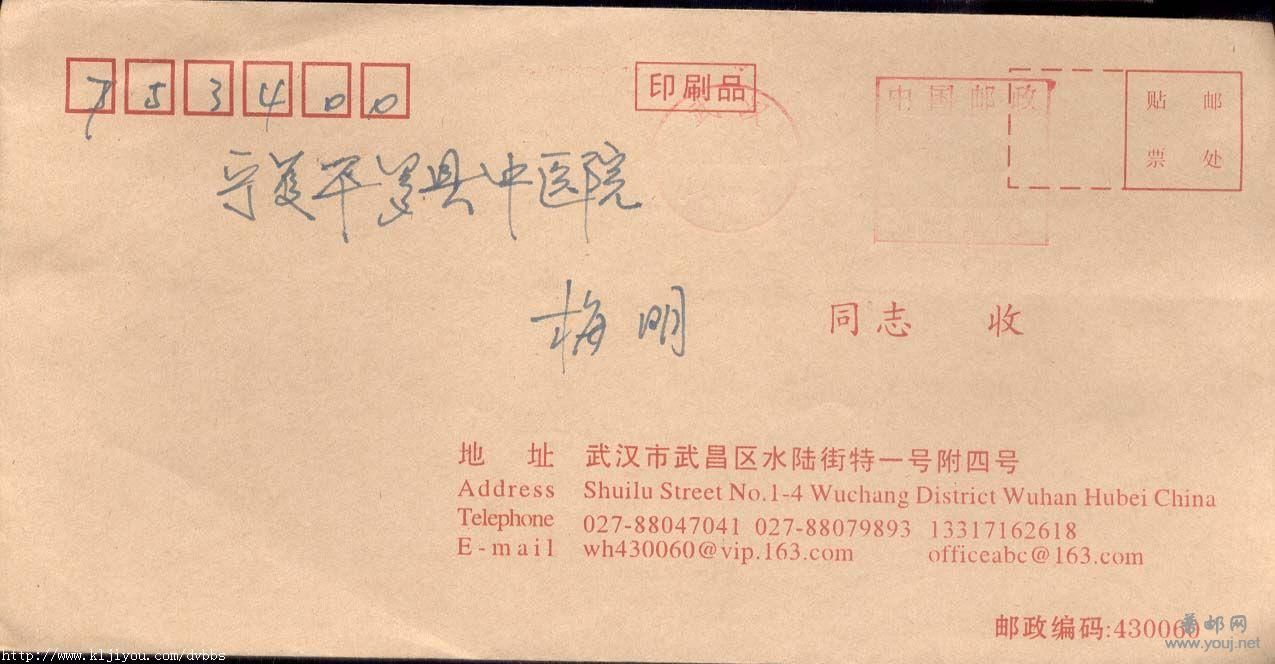 753400
印刷品
中国邮政
贴 邮
票 处
宁夏平罗县中医院
梅明 同志 收
地 址 武汉市武昌区水陆街特一号附四号
Address Shuilu Street No.1-4 Wuchang District Wuhan Hubei China
Telephone 027-88047041 027-88079893 13317162618
E-mail wh430060@vip.163.com officeabc@163.com
邮政编码:430060
http://www.kljiyou.com/dvbbs
www.youj.net